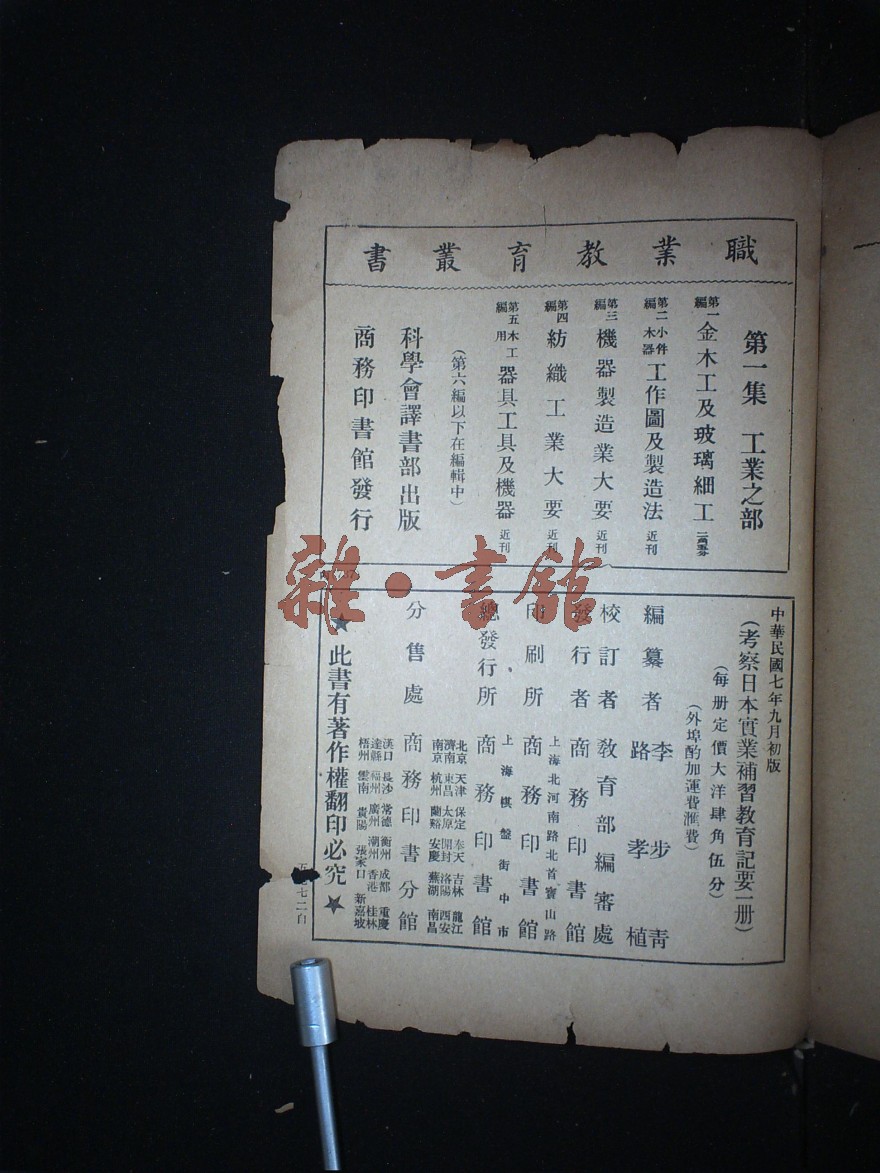 職業教育叢書
第一集 工業之部
第一編 金木工及玻璃細工
第二編 小件木器 工作圖及製造法 近刊
第三編 機器製造業大要 近刊
第四編 紡織工業大要 近刊
第五編 木工用 器具工具及機器 近刊
(第六編以下在編輯中)
科學會譯書部出版
商務印書館發行
中華民國七年九月初版
(考察日本實業補習教育記要一册)
(每册定價大洋肆角伍分)
(外埠酌加運費滙費)
編纂者 李步青 路孝植
校訂者 教育部編審處
發行者 商務印書館
上海北河南路北首寶山路
印刷所 商務印書館
上海棋盤街中市
總發行所 商務印書館
北京 天津 保定 奉天 吉林 龍江
濟南 東昌 太原 開封 洛陽 西安
南京 杭州 蘭谿 安慶 蕪湖 南昌
分售處 商務印書分館
漢口 長沙 常德 衡州 成都 重慶
達縣 福州 廣州 潮州 香港 桂林
梧州 雲南 貴陽 張家口 新嘉坡
★此書有著作權翻印必究★
雜·書館